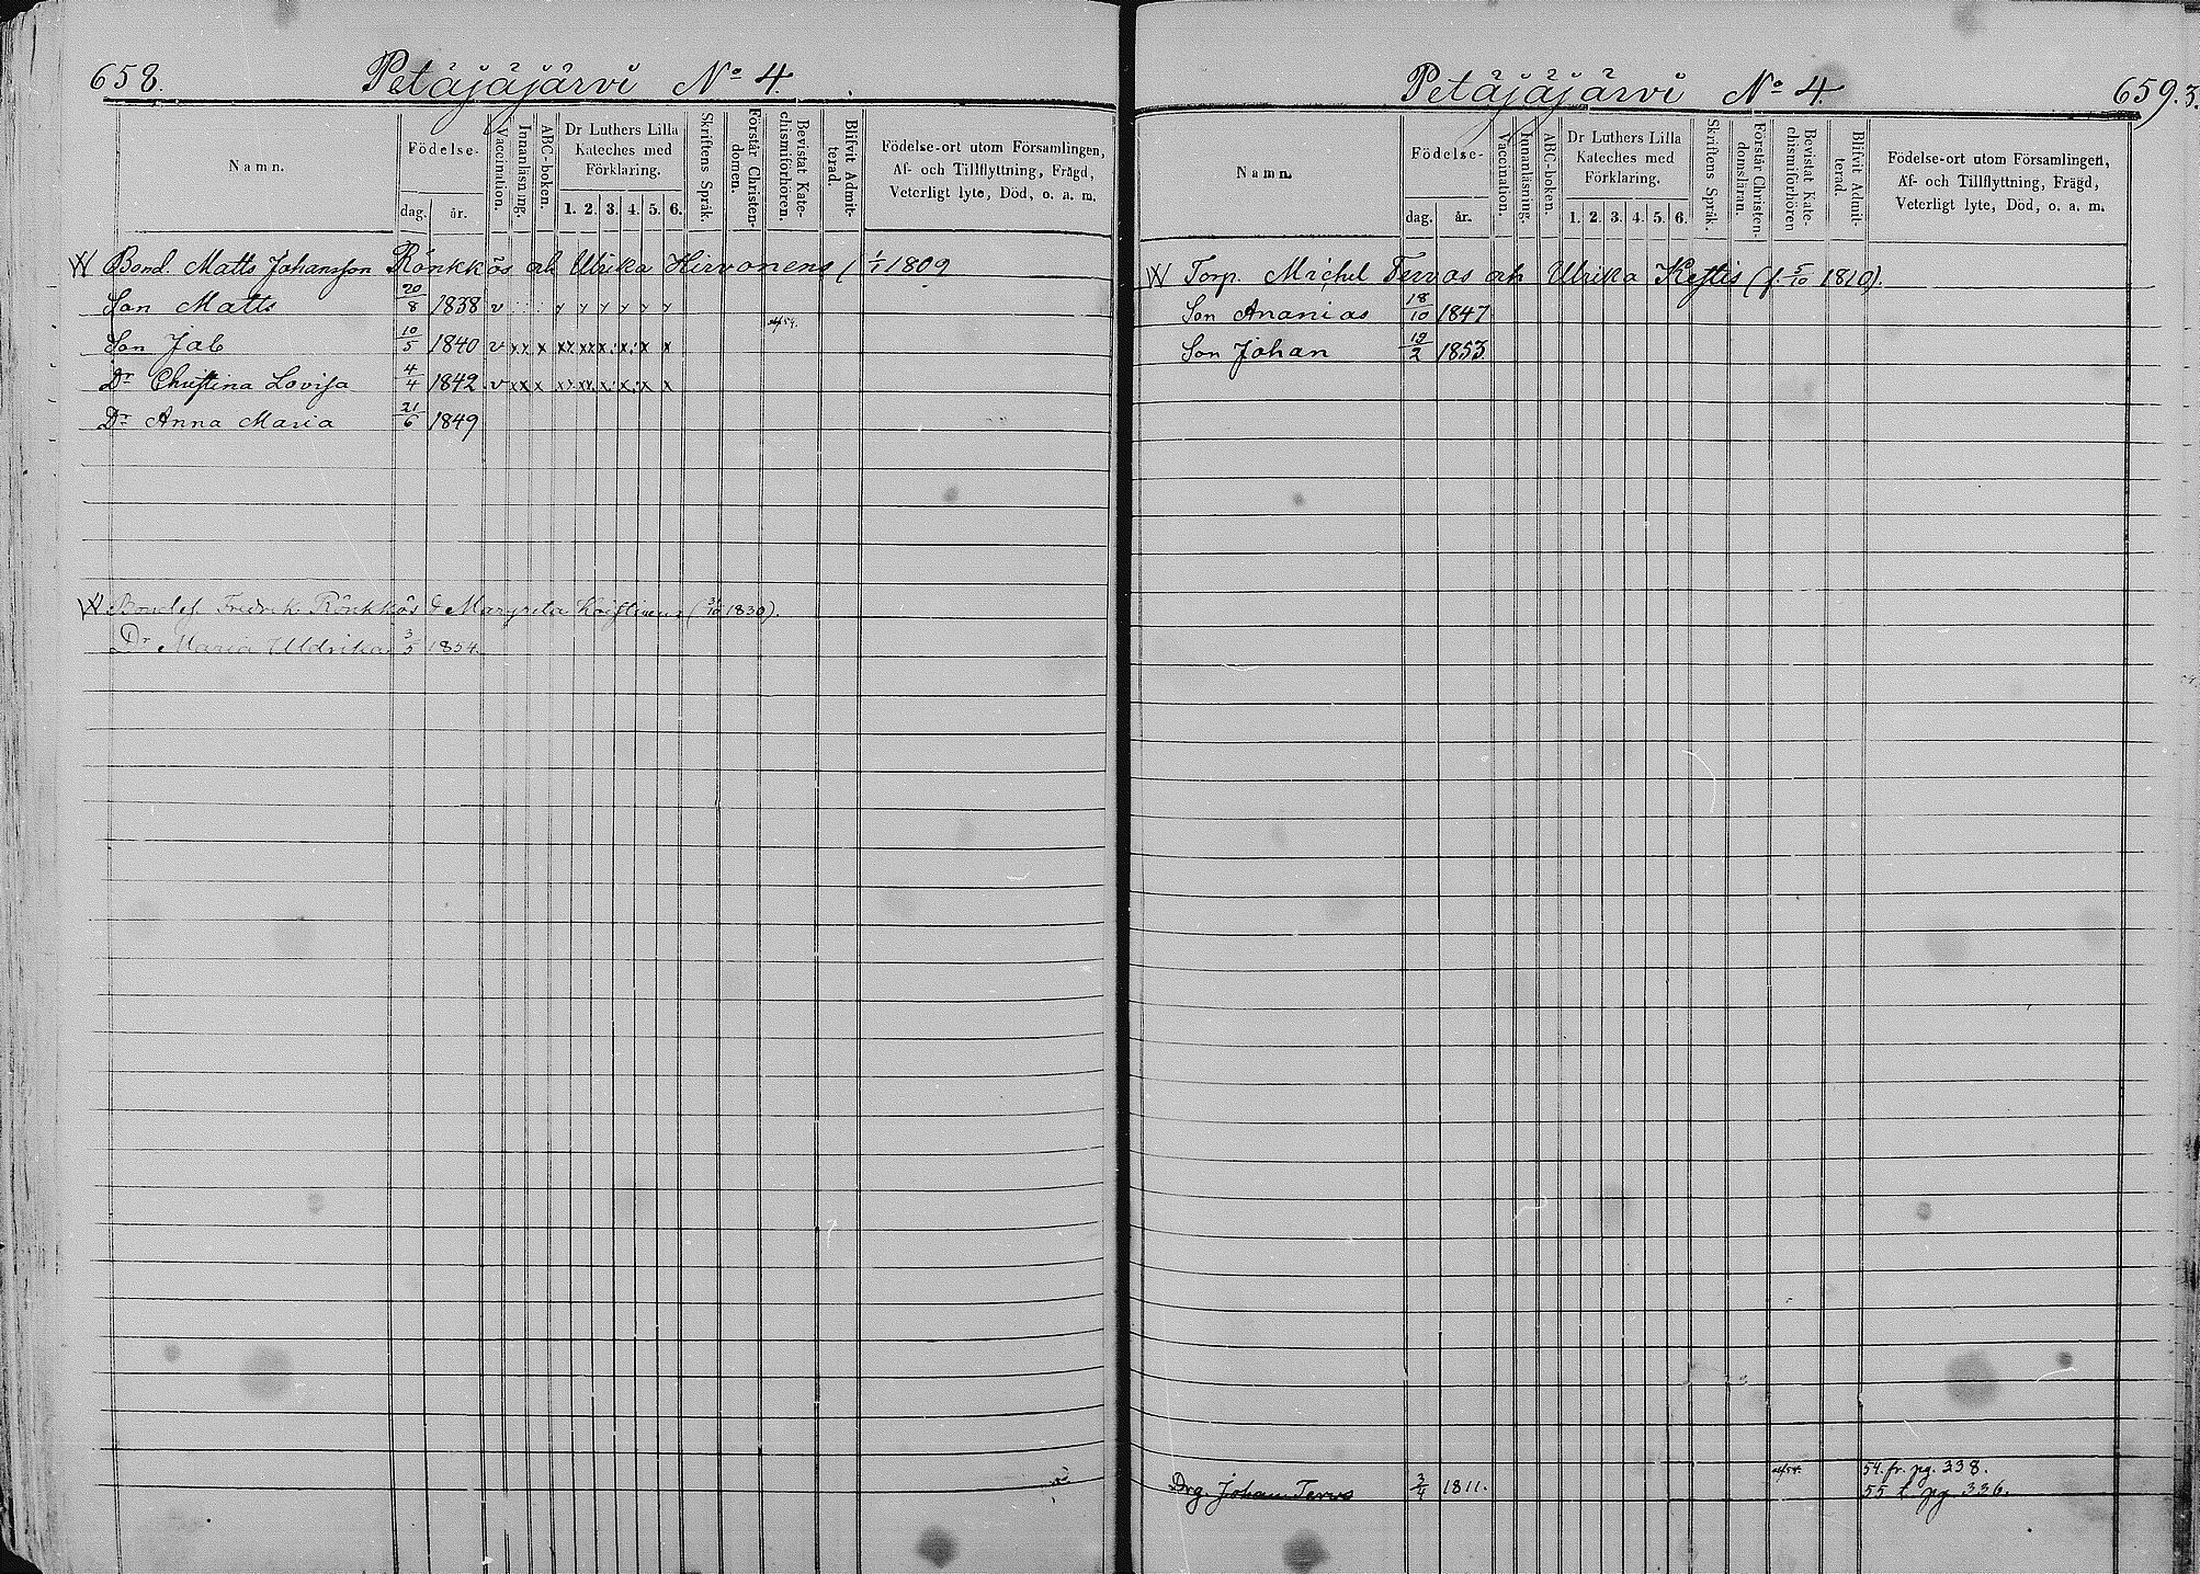 658.
Petäjäjärvi No 4.
Namn.
Födelse-
dag. år.
Vaccination.
Innanläsning.
ABC-boken.
Dr Luthers Lilla
Kateches med
Förklaring.
1. 2. 3. 4. 5. 6.
Skriftens Språk.
Förstår Christen-
domen.
Bevistat Kate-
chismiförhören.
Blifvit Admit-
terad.
Födelse-ort utom Församlingen,
Af- och Tillflyttning, Frägd,
Veterligt lyte, Död, o. a. m.
Bond. Matts Johansson Rönkkös och Ulrika Hirvonens ( 1/1 1809
Son Matts 20/8 1838 v
Son Jab 10/5 1840 v x x x x x x x x x x x
Dr Christina Lovisa 4/4 1842 v x x x x x x x x x x x
Dr Anna Maria 21/6 1849
Fredrik Rönkkös & Margreta 1830).
Dr Maria Uldrika 3/5 1854.
Petäjäjärvi No 4.
659.
Namn.
Födelse-
dag. år.
Vaccination.
Innanläsning.
ABC-boken.
Dr Luthers Lilla
Kateches med
Förklaring.
1. 2. 3. 4. 5. 6.
Skriftens Språk.
Förstår Christen-
domsläran.
Bevistat Kate-
chismiförhören
Blifvit Admit-
terad.
Födelse-ort utom Församlingen,
Af- och Tillflyttning, Frägd,
Veterligt lyte, Död, o. a. m.
Torp. Michel Tervos och Ulrika Kestis (f. 5/10 1810).
Son Ananias 18/10 1847
Son Johan 1853
54. fr. pg. 338.
Drg. Johan Tervo 3/4 1811.
55 t. pg. 336.